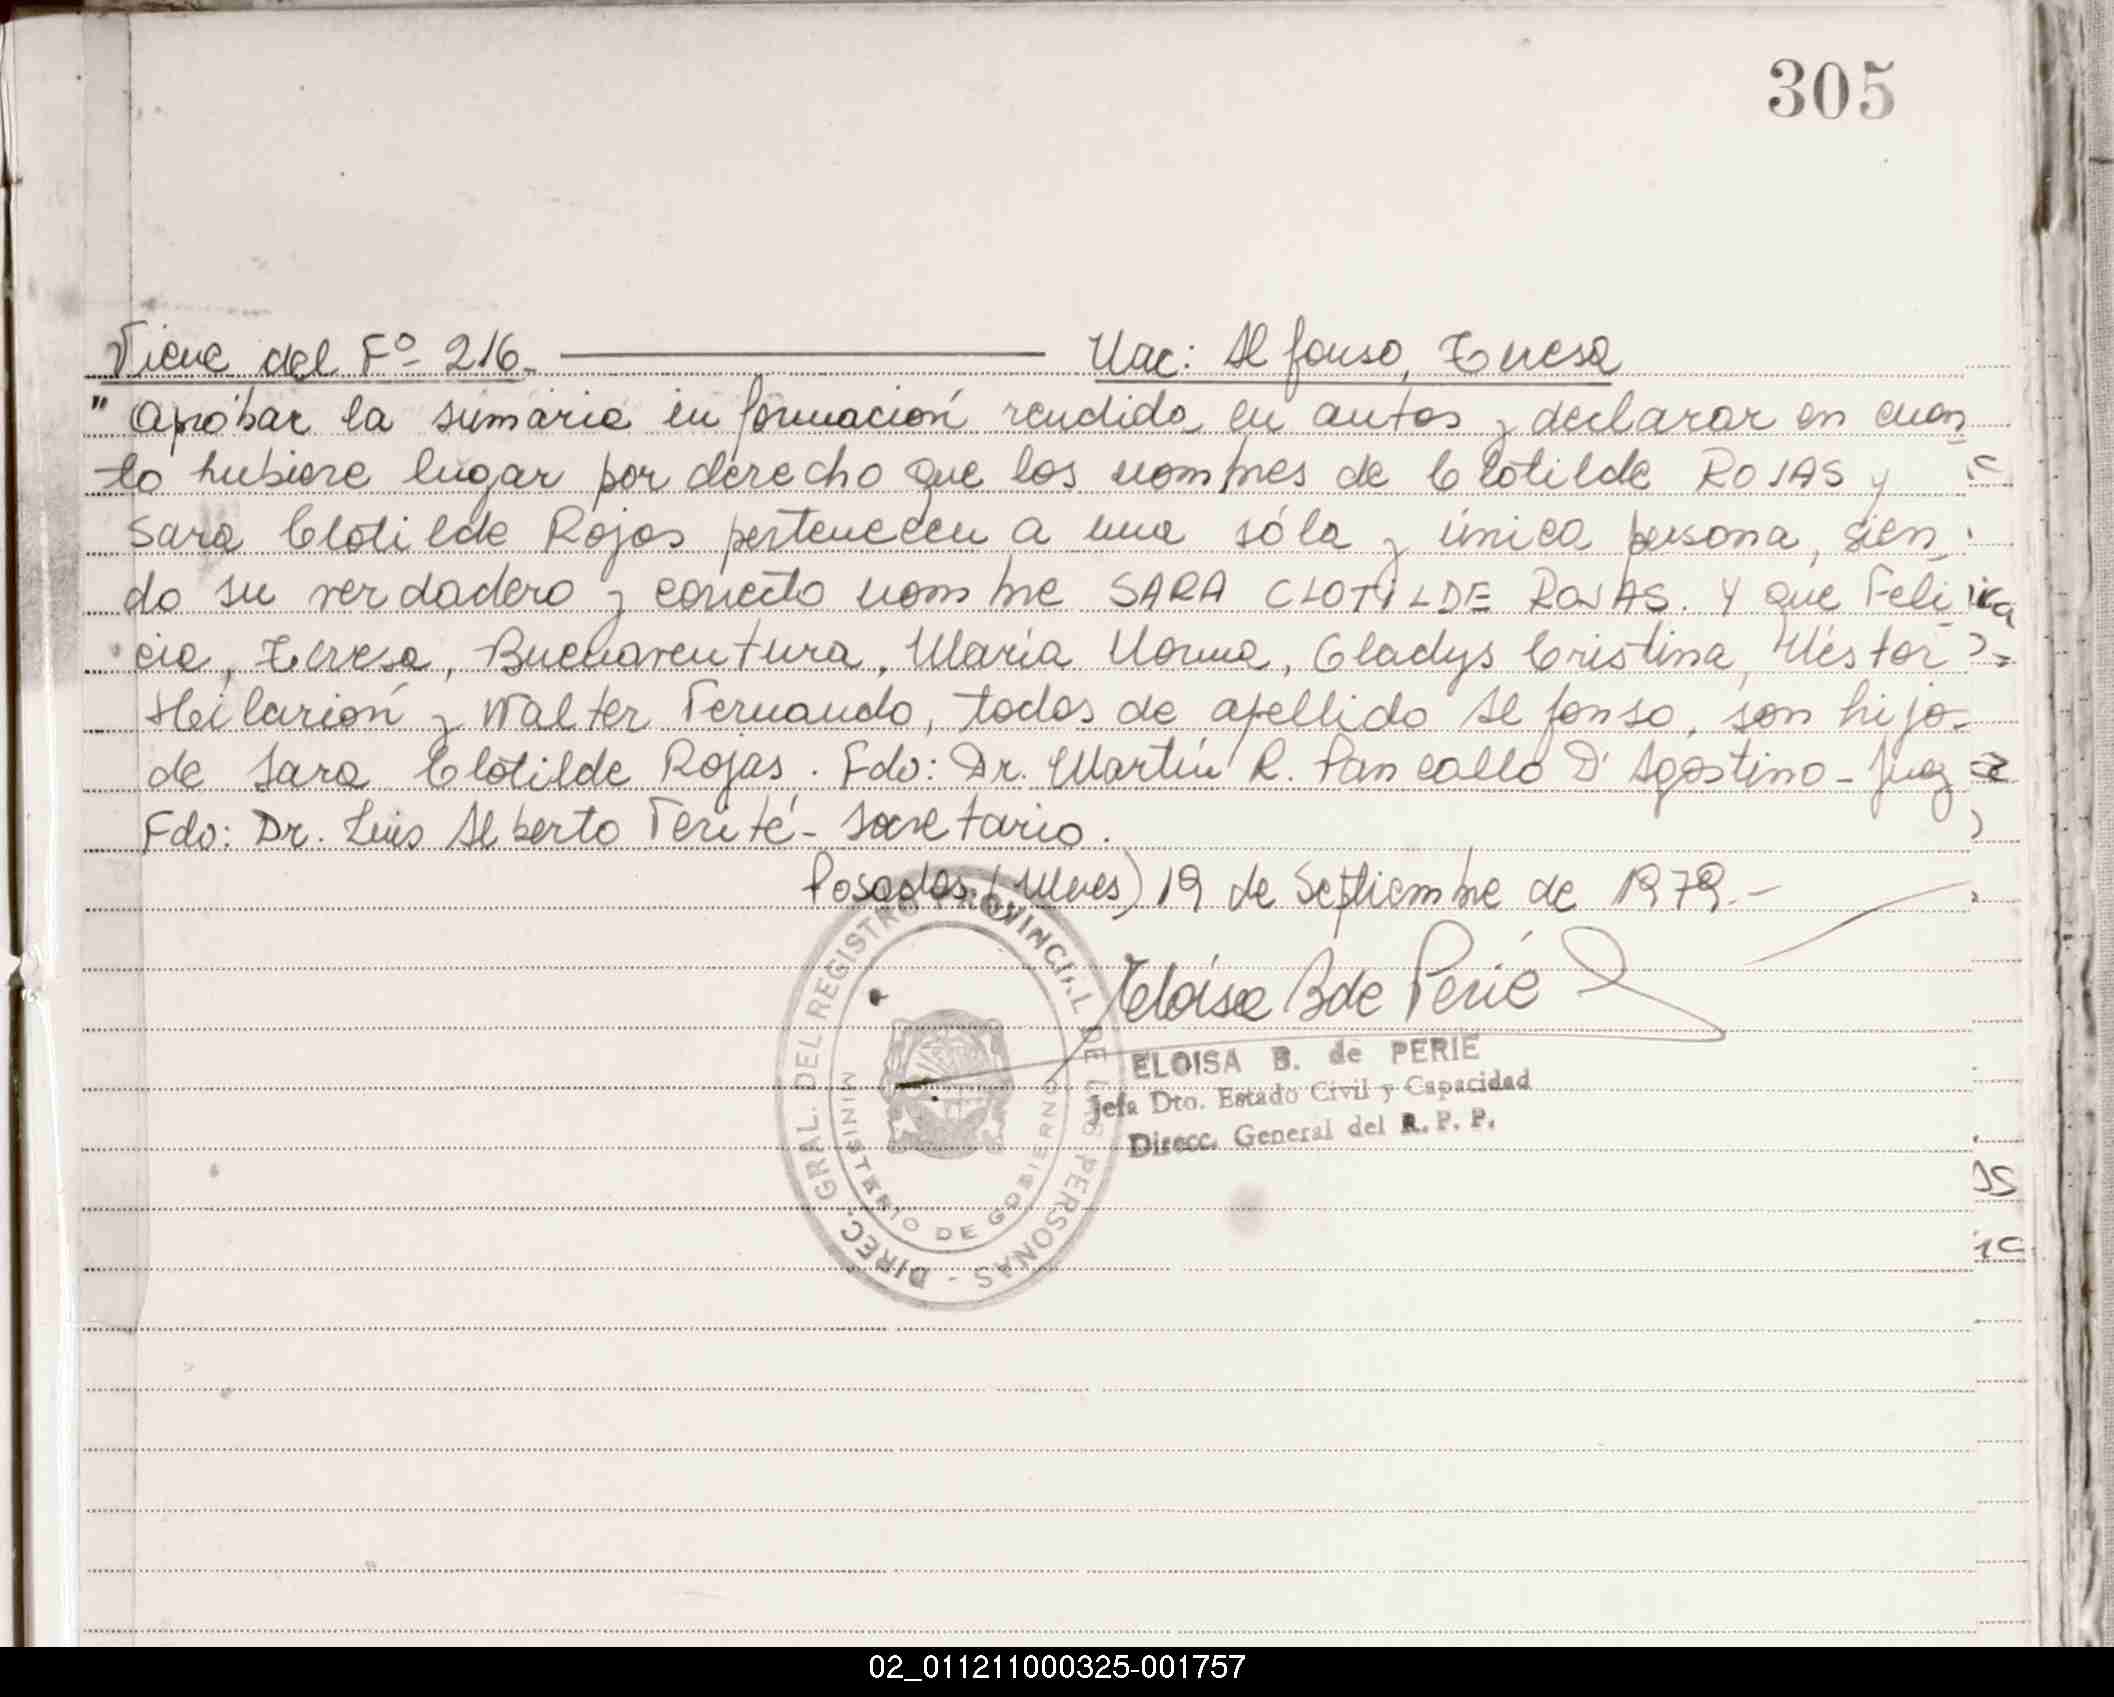 305
Viene del Fº 216. Nac: Alfonso, Teresa
"Aprobar la sumaria información rendida en autos y declarar en cuan
to hubiere lugar por derecho que los nombres de Clotilde ROJAS y
Sara Clotilde Rojas pertenecen a una sóla y única persona, sien
do su verdadero y correcto nombre SARA CLOTILDE ROJAS. Y que Feli
cia, Teresa, Buenaventura, María Norma, Gladys Cristina, Néstor
Hilarión y Walter Fernando, todos de apellido Alfonso, son hijo
de Sara Clotilde Rojas. Fdo: Dr. Martín R. Pancallo D'Agostino - Juez
Fdo: Dr. Luis Alberto Terité - Secretario.
Posadas (Mnes) 19 de Septiembre de 1979.-
Eloísa B de Perié
ELOISA B. de PERIE
Jefa Dto. Estado Civil y Capacidad
Direcc. General del R. P. P.
DIREC. GRAL. DEL REGISTRO PROVINCIAL DE LAS PERSONAS -
MINISTERIO DE GOBIERNO
02_011211000325-001757